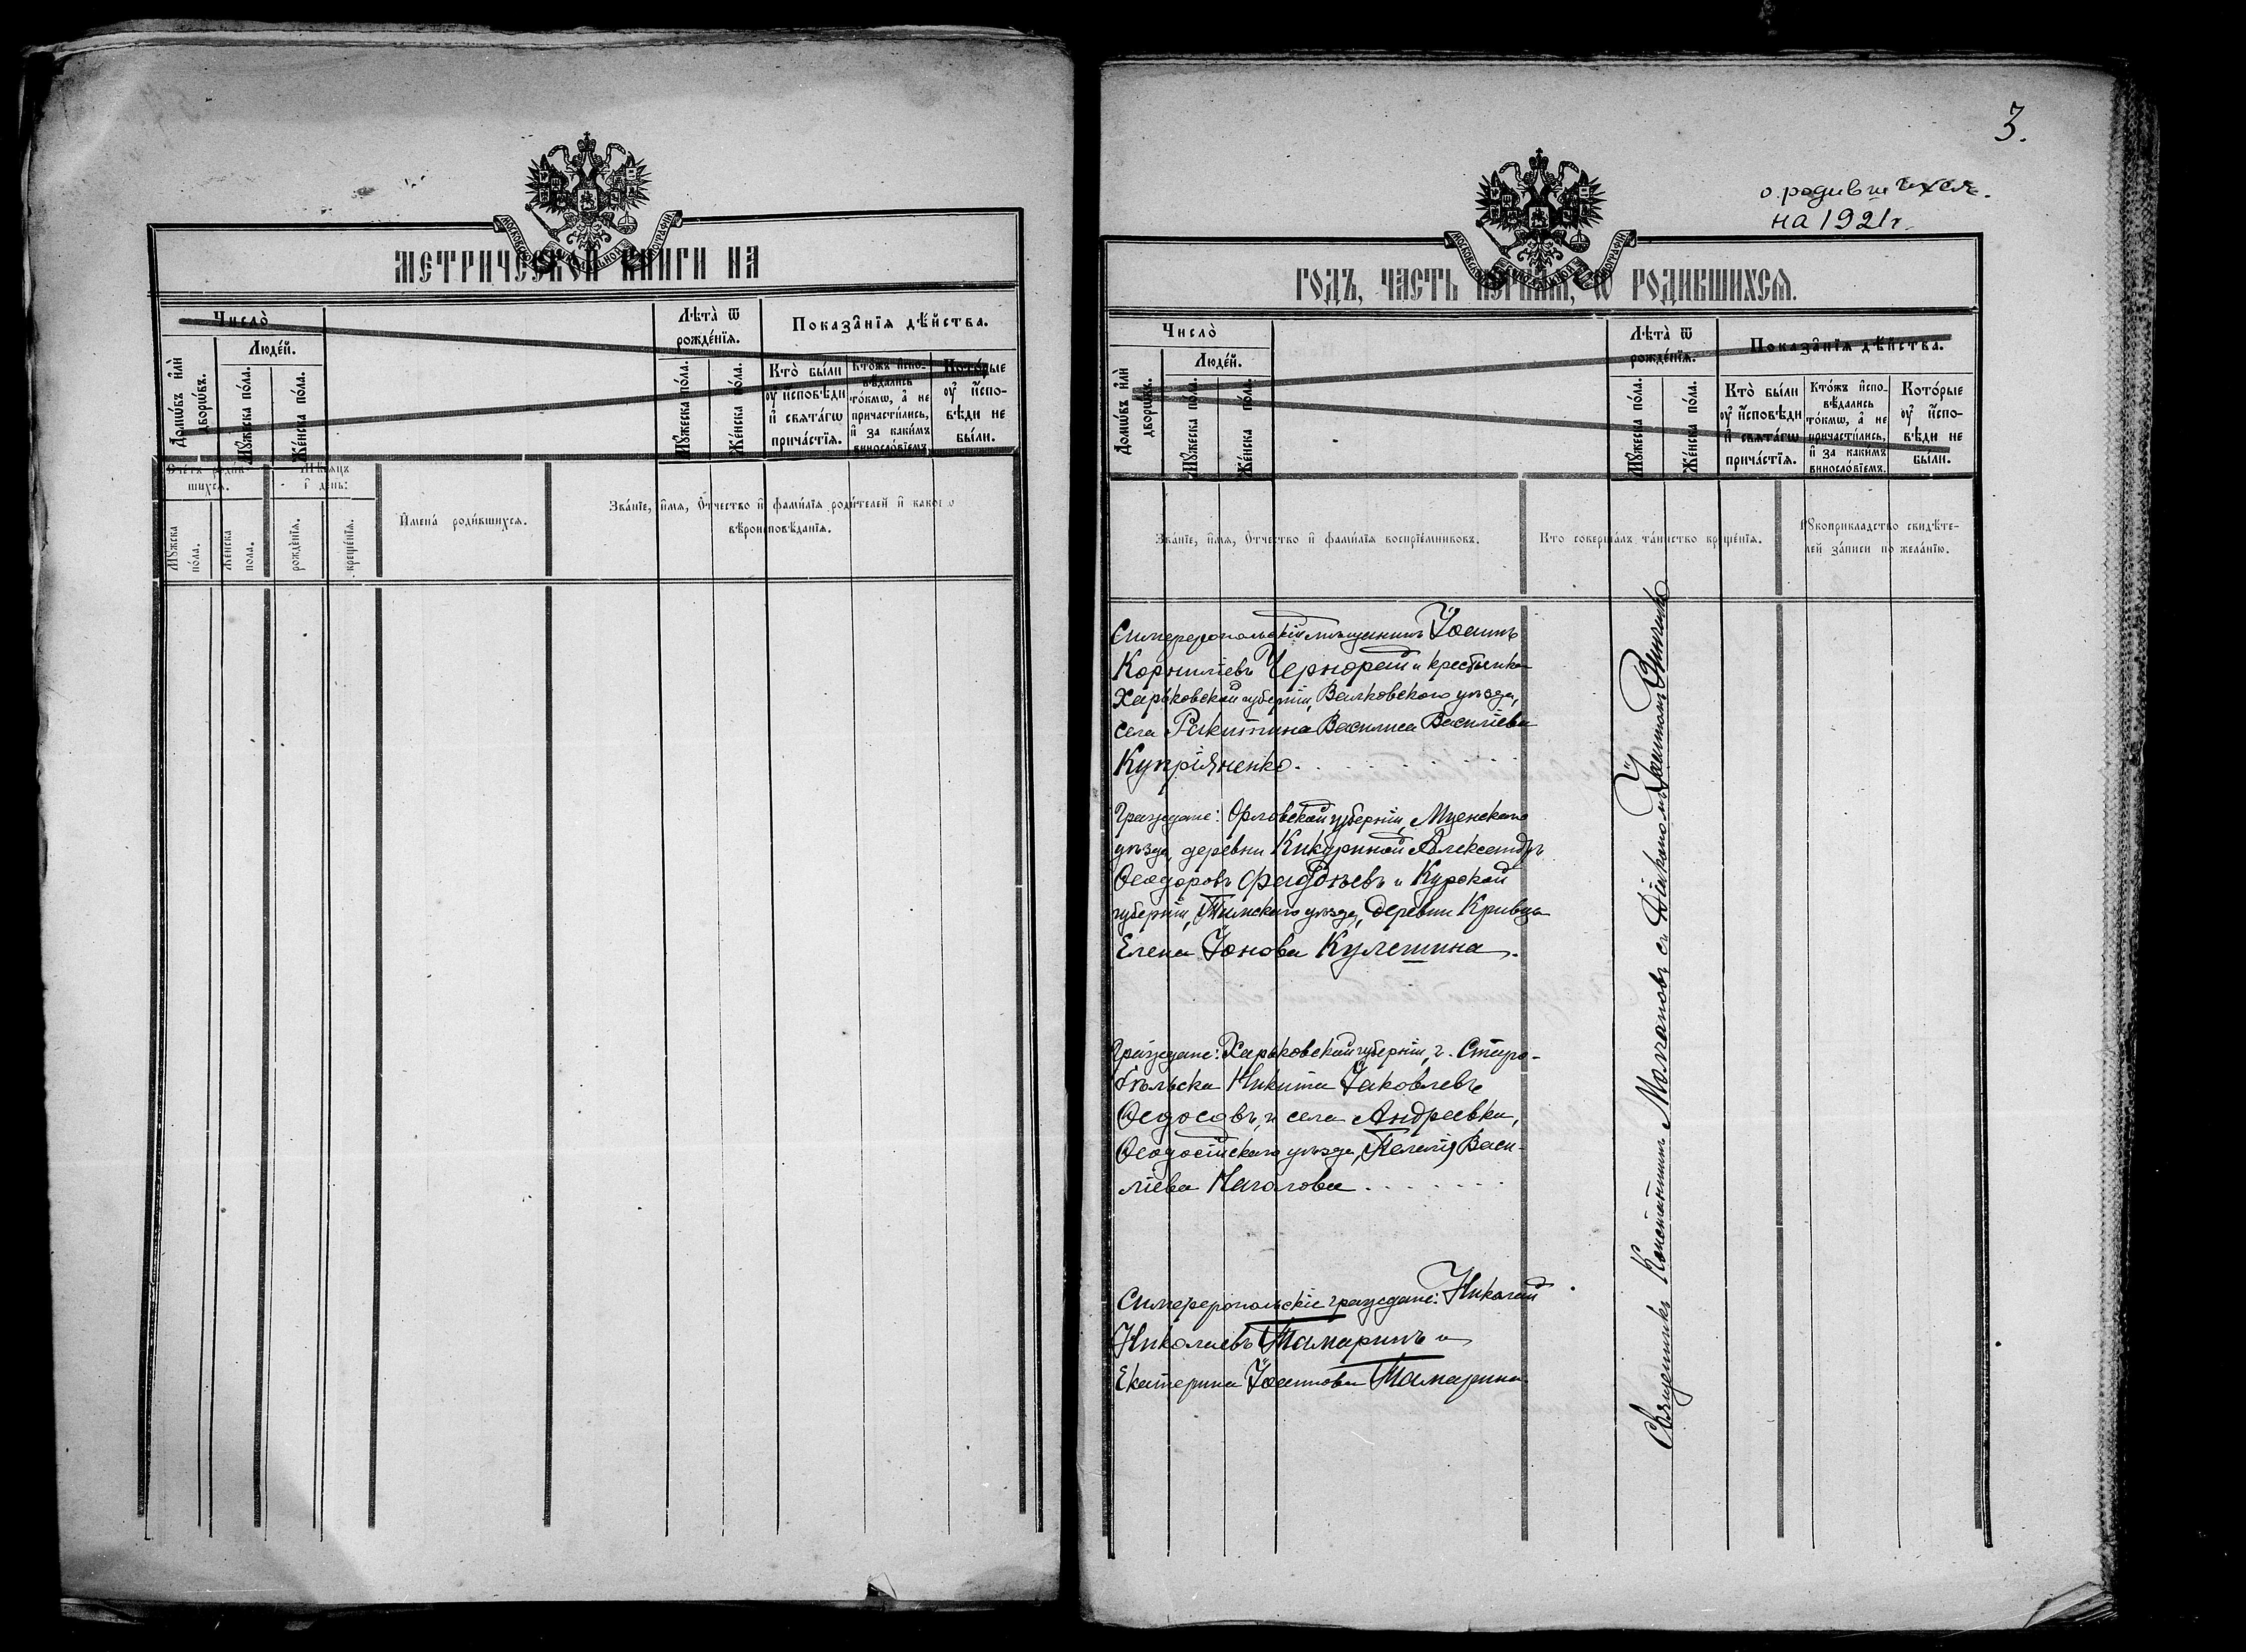 МОСКОВСКОЙ СѴНОДАЛЬНОЙ ТИПОГРАФІИ
МЕТРИЧЕСКОЙ КНИГИ НА
Число̀
Людéй.
Домѡ́въ и҆лѝ
дворѡ́въ.
Мꙋ́жеска пóла.
Жéнска пóла.
Лѣ́та ѿ
рождéнїѧ.
Мꙋ́жеска пóла.
Жéнска пóла.
Показа̑нїѧ дѣ́йства.
Кто̀ бы́ли
ᲂу҆ и҆́сповѣди
и҆ свѧта́гѡ
прича́стїѧ.
Кто́жъ и҆спо-
вѣ́дались
то́кмѡ, а҆ не
причасти́лись,
и҆ за каки́мъ
винослóвїемъ.
Котóрые
ᲂу҆ и҆́спо-
вѣди не
бы́ли.
Счéтъ роди́в-
шихсѧ.
Мꙋ́жска
пóла.
Жéнска
пóла.
Мѣ́сѧцъ
и҆ дéнь:
рождéнїѧ.
крещéнїѧ.
И҆мена́ роди́вшихсѧ.
Зва́нїе, и҆́мѧ, ѻ҆́тчество и҆ фами́лїѧ роди́телей и҆ како́гѡ
вѣроисповѣ́данїѧ.
3.
о родившихся
на 1921 г.
МОСКОВСКОЙ СѴНОДАЛЬНОЙ ТИПОГРАФІИ
ГОДЪ, ЧАСТЬ ПЕРВАЯ, Ѡ РОДИВШИХСѦ.
Число̀
Людéй.
Домѡ́въ и҆лѝ
дворѡ́въ.
Мꙋ́жеска пóла.
Жéнска пóла.
Лѣ́та ѿ
рождéнїѧ.
Мꙋ́жеска пóла.
Жéнска пóла.
Показа̑нїѧ дѣ́йства.
Кто̀ бы́ли
ᲂу҆ и҆́сповѣди
и҆ свѧта́гѡ
прича́стїѧ.
Кто́жъ и҆спо-
вѣ́дались
то́кмѡ, а҆ не
причасти́лись,
и҆ за каки́мъ
винослóвїемъ.
Котóрые
ᲂу҆ и҆́спо-
вѣди не
бы́ли.
Зва́нїе, и҆́мѧ, ѻ҆́тчество и҆ фами́лїѧ воспрїéмниковъ.
Кто соверша́лъ та́инство крещéнїѧ.
Рꙋкоприкладство свидѣте-
лей за́писи по жела́нїю.
Симферопольскій мѣщанинъ Іоаннъ
Корниліевъ Чернорай и крестьянка
Харьковской губерніи, Валковскаго уѣзда,
села Ракитина Василиса Василіева
Купріяненко.
Граждане: Орловской губерніи, Мценскаго
уѣзда, деревни Кикуриной Александръ
Ѳеодоровъ Фадѣевъ и Курской
губерніи, Тимскаго уѣзда, деревни Кривца
Елена Іонова Кулешина.
Граждане: Харьковской губерніи, г. Старо-
бѣльска Никита Іаковлевъ
Ѳедосовъ, и села Андреевки,
Ѳеодосійскаго уѣзда, Пелагія Васи-
ліева Нагалова
Симферопольскіе граждане: Николай
Николаевъ Тамаринъ и
Екатерина Іоаннова Тамарина.
Священникъ Константинъ Молчановъ съ Діакономъ Іоанномъ